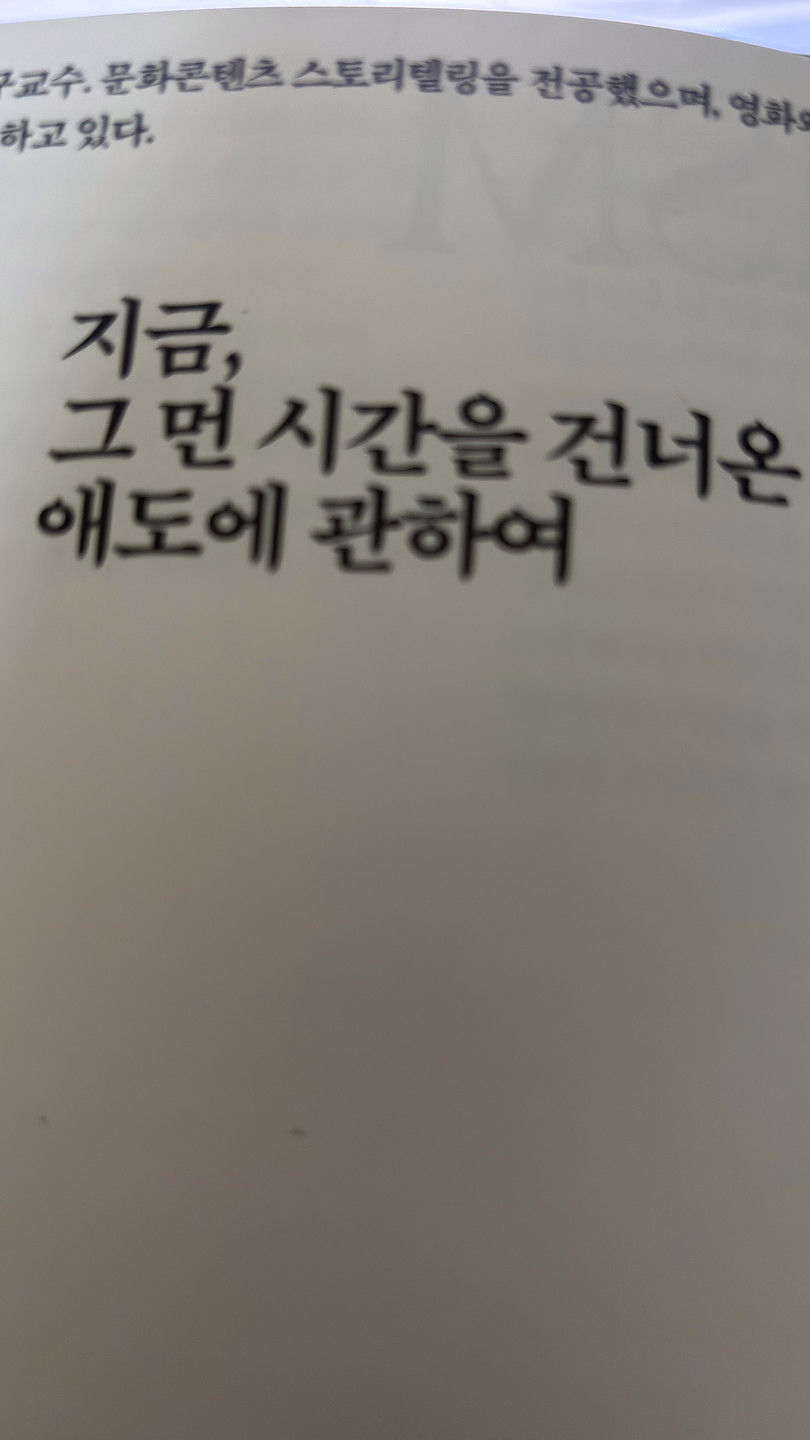 구교수. 문화콘텐츠 스토리텔링을 전공했으며, 영화와
하고 있다.
지금,
그 먼 시간을 건너온
애도에 관하여